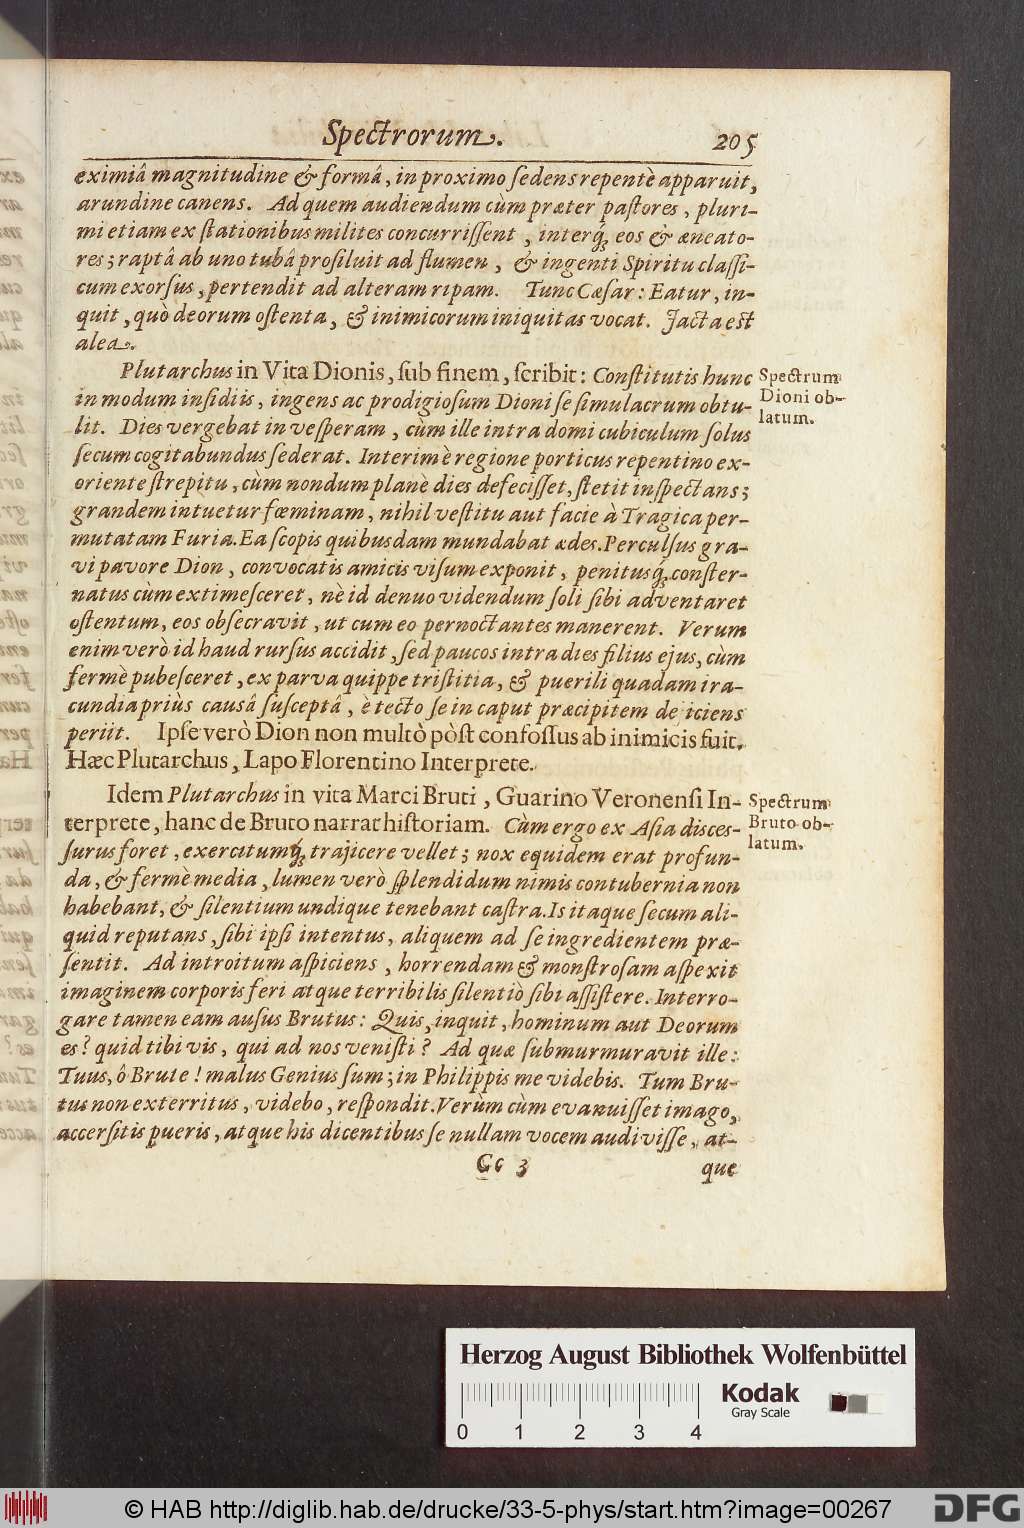 Spectrorum.
205
eximiâ magnitudine & formâ, in proximo ſedens repentè apparuit,
arundine canens. Ad quem audiendum cùm præter paſtores, pluri-
mi etiam ex ſtationibus milites concurriſſent, interq́ꝫ eos & æneato-
res; raptâ ab uno tubâ proſiluit ad flumen, & ingenti Spiritu claſſi-
cum exorſus, pertendit ad alteram ripam. Tunc Cæſar: Eatur, in-
quit, quò deorum oſtenta, & inimicorum iniquitas vocat. Jacta eſt
alea.
Plutarchus in Vita Dionis, ſub finem, ſcribit: Conſtitutis hunc
Spectrum
Dioni ob-
latum.
in modum inſidiis, ingens ac prodigioſum Dioni ſe ſimulacrum obtu-
lit. Dies vergebat in veſperam, cùm ille intra domi cubiculum ſolus
ſecum cogitabundus ſederat. Interim è regione porticus repentino ex-
oriente ſtrepitu, cùm nondum planè dies defeciſſet, ſtetit inſpectans;
grandem intuetur fœminam, nihil veſtitu aut facie à Tragica per-
mutatam Furia. Ea ſcopis quibusdam mundabat ædes. Perculſus gra-
vi pavore Dion, convocatis amicis viſum exponit, penitusq́ꝫ conſter-
natus cùm extimeſceret, nè id denuo videndum ſoli ſibi adventaret
oſtentum, eos obſecravit, ut cum eo pernoctantes manerent. Verum
enim verò id haud rurſus accidit, ſed paucos intra dies filius ejus, cùm
fermè pubeſceret, ex parva quippe triſtitia, & puerili quadam ira-
cundia priùs causâ ſuſceptâ, è tecto ſe in caput præcipitem deiiciens
periit. Ipſe verò Dion non multò pòſt confoſſus ab inimicis fuit.
Hæc Plutarchus, Lapo Florentino Interprete.
Idem Plutarchus in vita Marci Bruti, Guarino Veronenſi In-
Spectrum
Bruto ob-
latum.
terprete, hanc de Bruto narrat hiſtoriam. Cùm ergo ex Aſia disceſ-
ſurus foret, exercitumq́ꝫ trajicere vellet; nox equidem erat profun-
da, & fermè media, lumen verò ſplendidum nimis contubernia non
habebant, & ſilentium undique tenebant caſtra. Is itaque ſecum ali-
quid reputans, ſibi ipſi intentus, aliquem ad ſe ingredientem præ-
ſentit. Ad introitum aſpiciens, horrendam & monſtroſam aſpexit
imaginem corporis feri atque terribilis ſilentiò ſibi aſſiſtere. Interro-
gare tamen eam auſus Brutus: Quis, inquit, hominum aut Deorum
es? quid tibi vis, qui ad nos veniſti? Ad quæ ſubmurmuravit ille:
Tuus, ô Brute! malus Genius ſum; in Philippis me videbis. Tum Bru-
tus non exterritus, videbo, reſpondit. Verùm cùm evanuiſſet imago,
accerſitis pueris, atque his dicentibus ſe nullam vocem audiviſſe, at-
Cc 3
que
Herzog August Bibliothek Wolfenbüttel
Kodak
Gray Scale
0 1 2 3 4
© HAB http://diglib.hab.de/drucke/33-5-phys/start.htm?image=00267
DFG